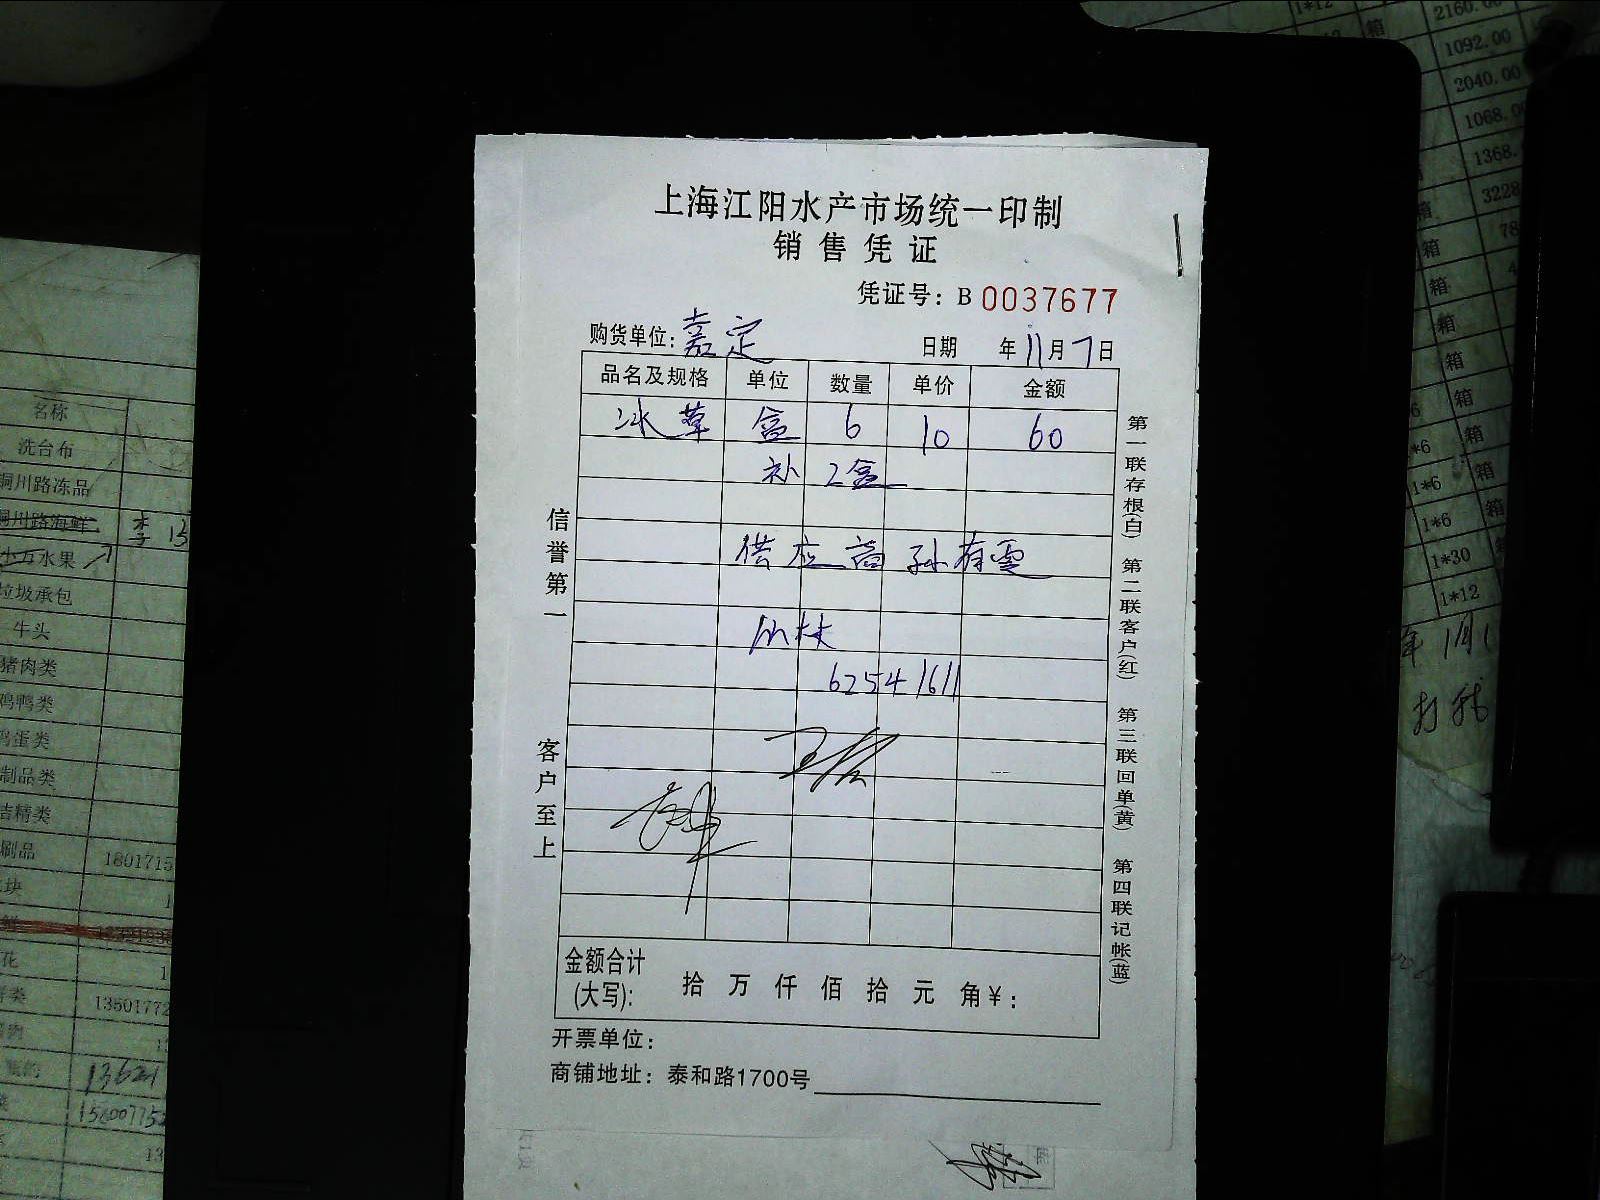 上海江阳水产市场统一印制
销售凭证
凭证号：B 0037677
购货单位：嘉定 日期 年11月7日
品名及规格 单位 数量 单价 金额
冰草 盒 6 10 60
补 2盒
供应商 孙有雯
62541611
信誉第一
客户至上
第一联存根(白) 第二联客户(红) 第三联回单(黄) 第四联记帐(蓝)
金额合计(大写)： 拾 万 仟 佰 拾 元 角¥：
开票单位：
商铺地址：泰和路1700号
名称
洗台布
铜川路冻品
铜川路海鲜 李 13
水果
垃圾承包
牛头
猪肉类
鸡鸭类
蛋类
制品类
洁精类
刷品 1801715
块
花
1350177
13621
13
1*12 箱 2160.00
箱 1092.00
2040.00
1068.0
1368.
箱 3228
箱 78
箱
箱
箱
箱
*6 箱
1*6 箱
1*6
1*30
1*12
年 1月1